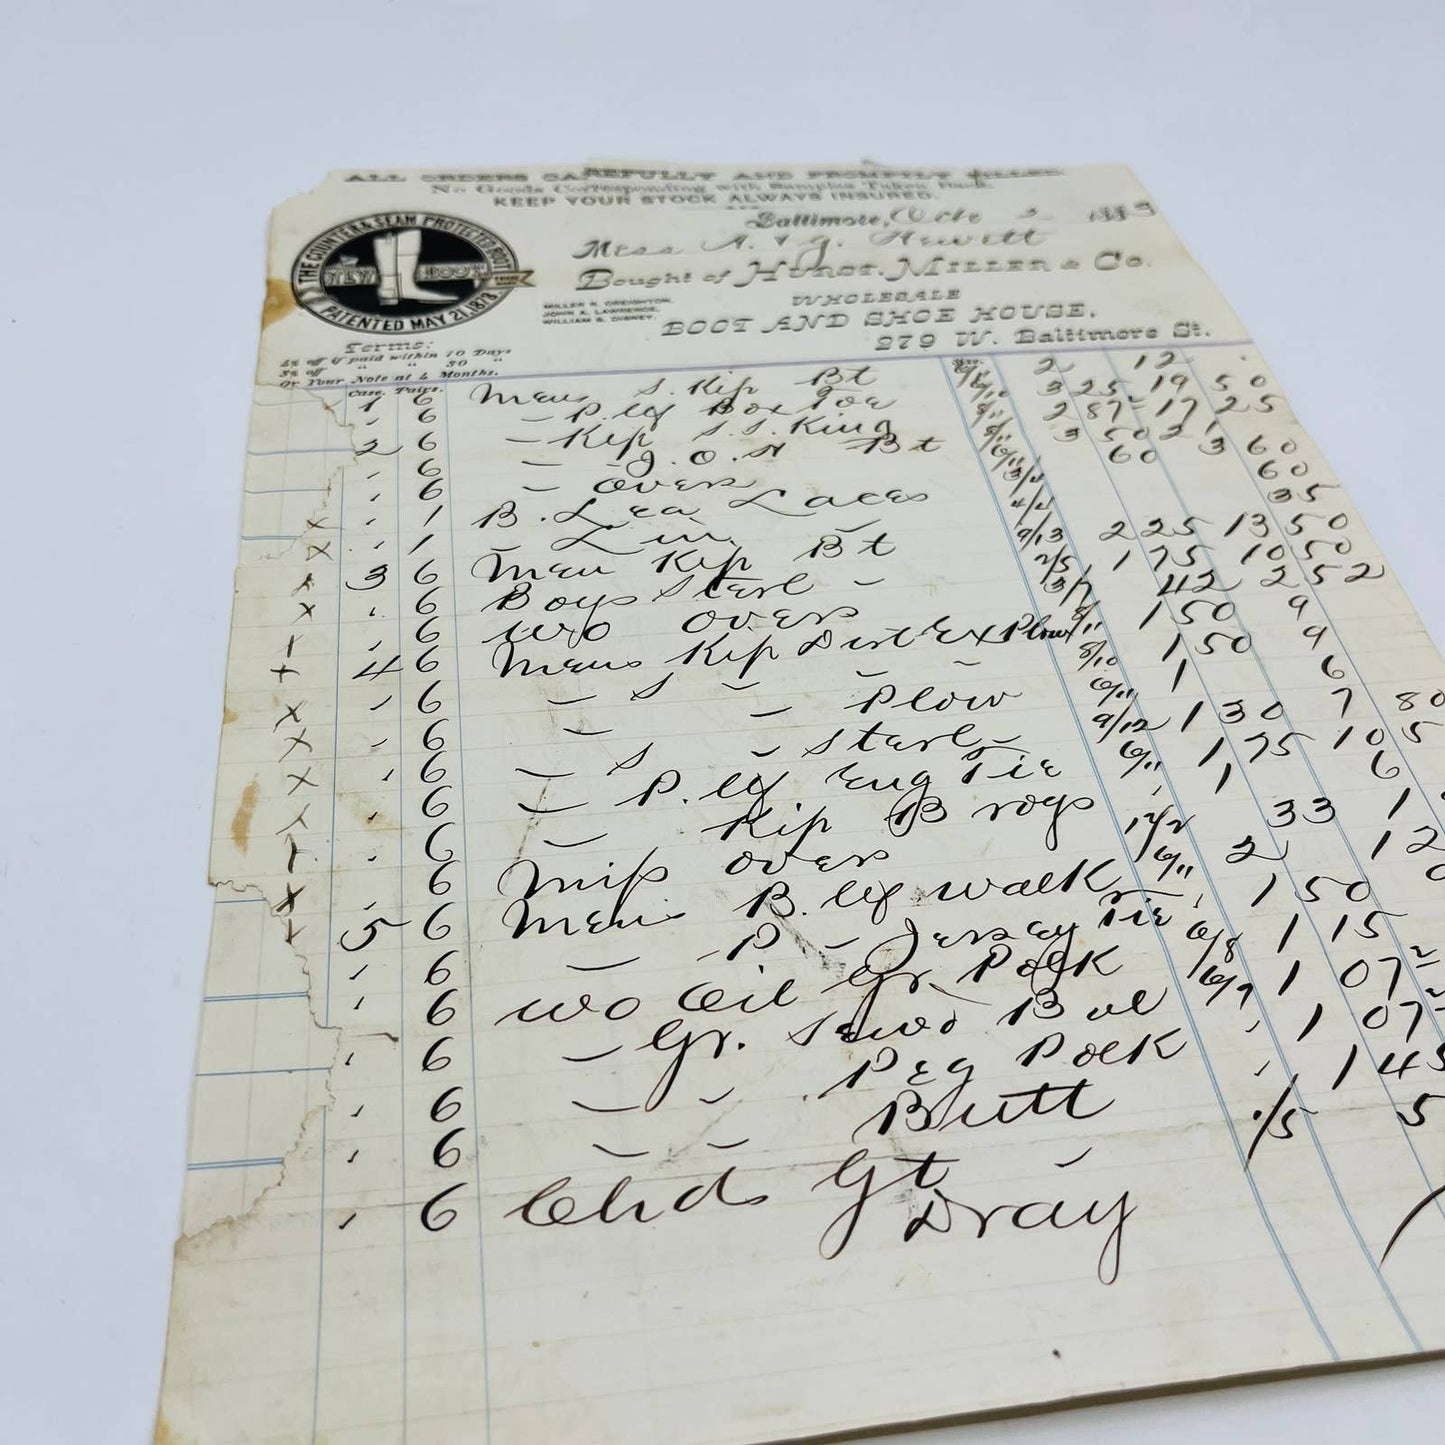 ALL ORDERS CAREFULLY AND PROMPTLY FILLED
No Goods Corresponding with Samples Taken Back.
KEEP YOUR STOCK ALWAYS INSURED.
Baltimore, 1883
THE COUNTER & SEAM PROTECTED BOOT
NEW BOOT
PATENTED MAY 21, 1873
J. Hewitt
Bought of HURST, MILLER & CO.
WHOLESALE
MILLER R. CREIGHTON,
JOHN A. LAWRENCE,
WILLIAM B. DISNEY.
BOOT AND SHOE HOUSE,
279 W. Baltimore St.
Terms:
5% off if paid within 10 Days
5% off " " 30 "
Or Your Note at 4 Months.
Case. Pairs.
1 6 Mens S. Kip Bt 2 12
6 - P. Box Toe 3 25 19 50
2 6 - Kip S.S. King 2 87 17 25
6 - J.O.H Bt 3 50 21
6 - Overs 60 3 60
1 B. Lea Laces 60
1 - Lin 35
3 6 Mens Kip Bt 9/13 2 25 13 50
6 Boys Sterl - 2/5 1 75 10 50
6 Wo Overs 3/7 42 2 52
4 6 Mens Kip Dirt Ex Plow 6/11 1 50 9
6 - S - - - 6/10 1 50 9
6 - - Plow 6/11 1 6
6 - S - Sterl - 9/12 1 30 7 80
6 - P. Eng Tie 6/11 1 75 10 5
6 - Kip Brogs 1 6
6 Miss Overs 12/2 33 1
5 6 Mens B. Walk 6/11 2 12
6 - P - Jersey Tie 1 50
6 Wo Oil Gr. Polk 6/8 1 15
6 - Gr. Sewd Bal 6/9 1 07
6 - - Peg Polk 1 07
6 - - Butt 1 45
6 Chds Gt - 1/5 5
Dray